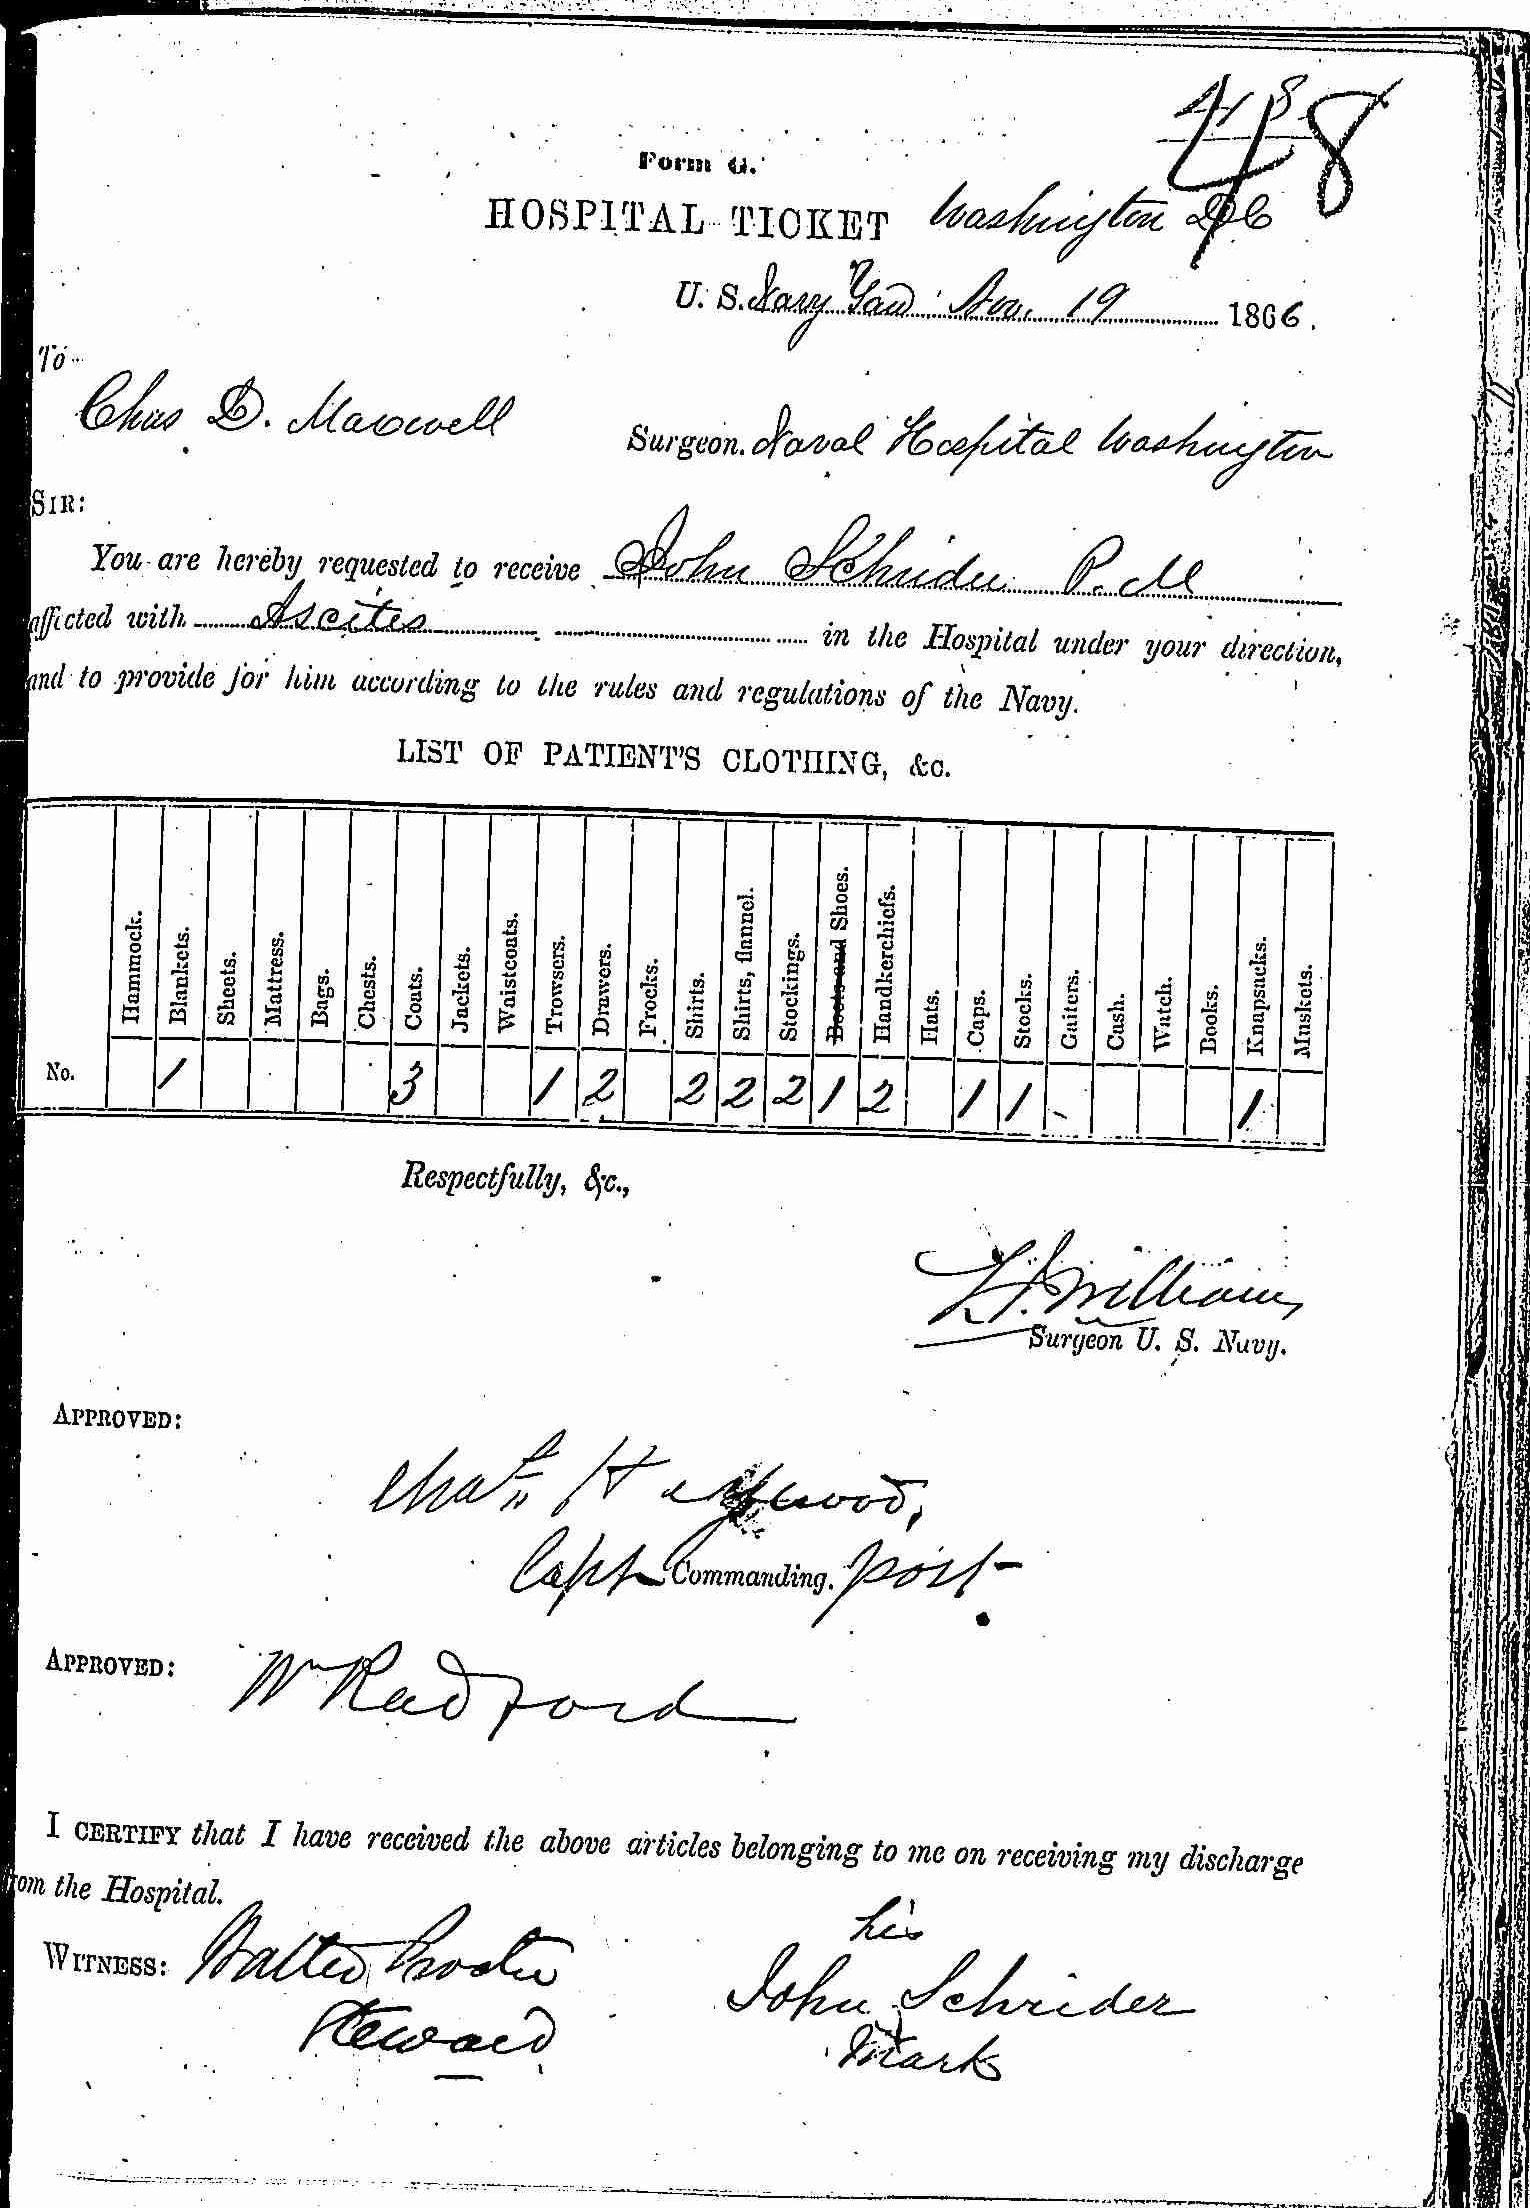 48
48
Form G.
HOSPITAL TICKET Washington DC
U. S. Navy Yard Nov. 19 1866.
To
Chas D. Maxwell Surgeon. Naval Hospital Washington
SIR:
You are hereby requested to receive John Schrider P. M
afficted with Ascites in the Hospital under your direction,
and to provide for him according to the rules and regulations of the Navy.
LIST OF PATIENT'S CLOTHING, &c.
Hammock. Blankets. Sheets. Mattress. Bags. Chests. Coats. Jackets. Waistcoats. Trowsers. Drawers. Frocks. Shirts. Shirts, flannel. Stockings. Boots and Shoes. Handkerchiefs. Hats. Caps. Stocks. Gaiters. Cash. Watch. Books. Knapsacks. Muskets.
No. 1 3 1 2 2 2 2 1 2 1 1 - 1
Respectfully, &c.,
Williams
Surgeon U. S. Navy.
APPROVED:
Chas. Heywood,
Capt Commanding. post
APPROVED: Wm Radford
I CERTIFY that I have received the above articles belonging to me on receiving my discharge
from the Hospital.
his
WITNESS: Walter John Schrider
Steward mark